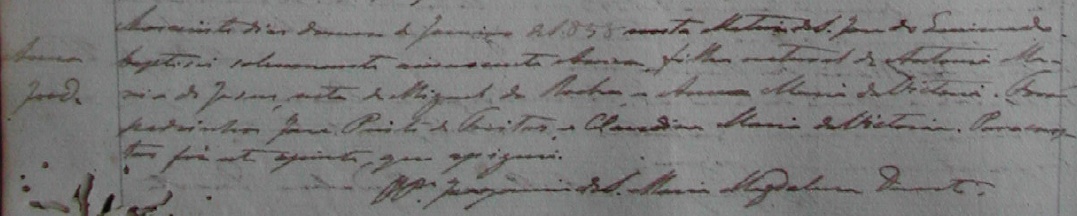 Aos vinte dias do mez de Janeiro de 1858 nesta Matriz de S. José do
baptisei solemnemente innocente Anna, filha natural de Antonia Ma-
Anna
ria de Jesus, neta de Miguel da Rocha e Anna Maria da Victoria. Foram
padrinhos José Pinto de Freitas, e Claudina Maria da Victoria. Para cons-
tar fiz este que assignei.
Joaquim de S. Maria Magdalena Duarte.